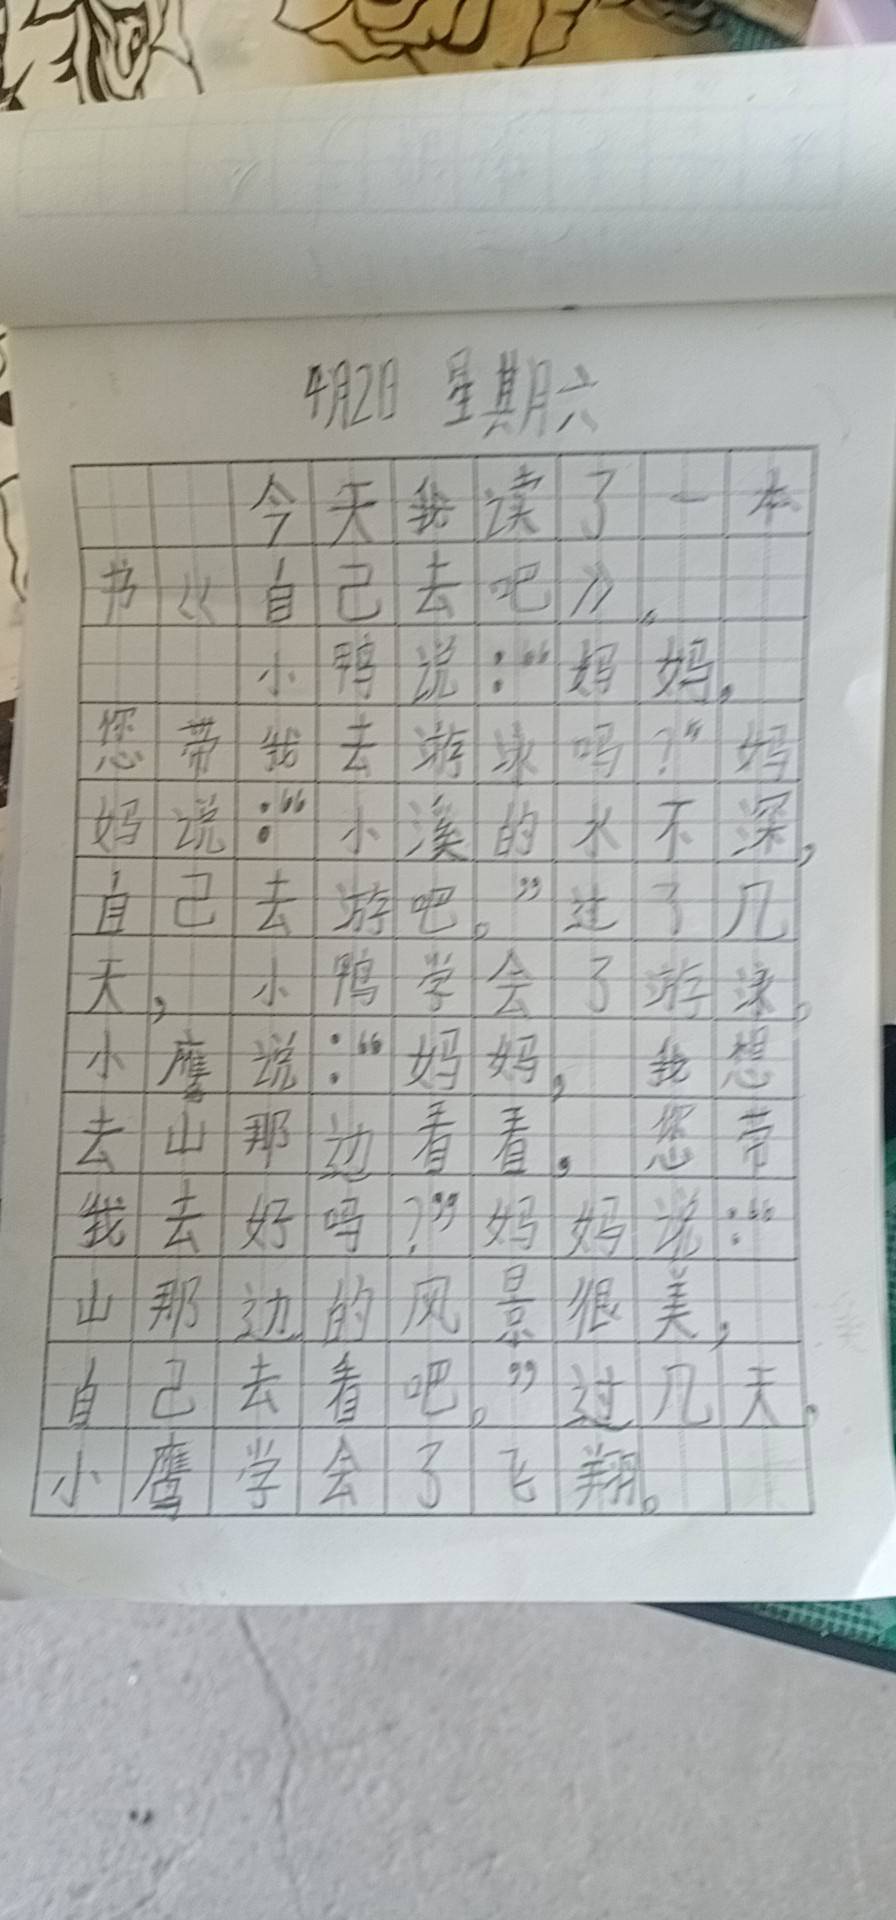 4月2日 星期六
今天我读了一本
书《自己去吧》。
小鸭说:“妈妈,
您带我去游泳吗?”妈
妈说:“小溪的水不深,
自己去游吧。”过了几
天,小鸭学会了游泳。
小鹰说:“妈妈,我想
去山那边看看,您带
我去好吗?”妈妈说:“
山那边的风景很美,
自己去看吧。”过几天,
小鹰学会了飞翔。